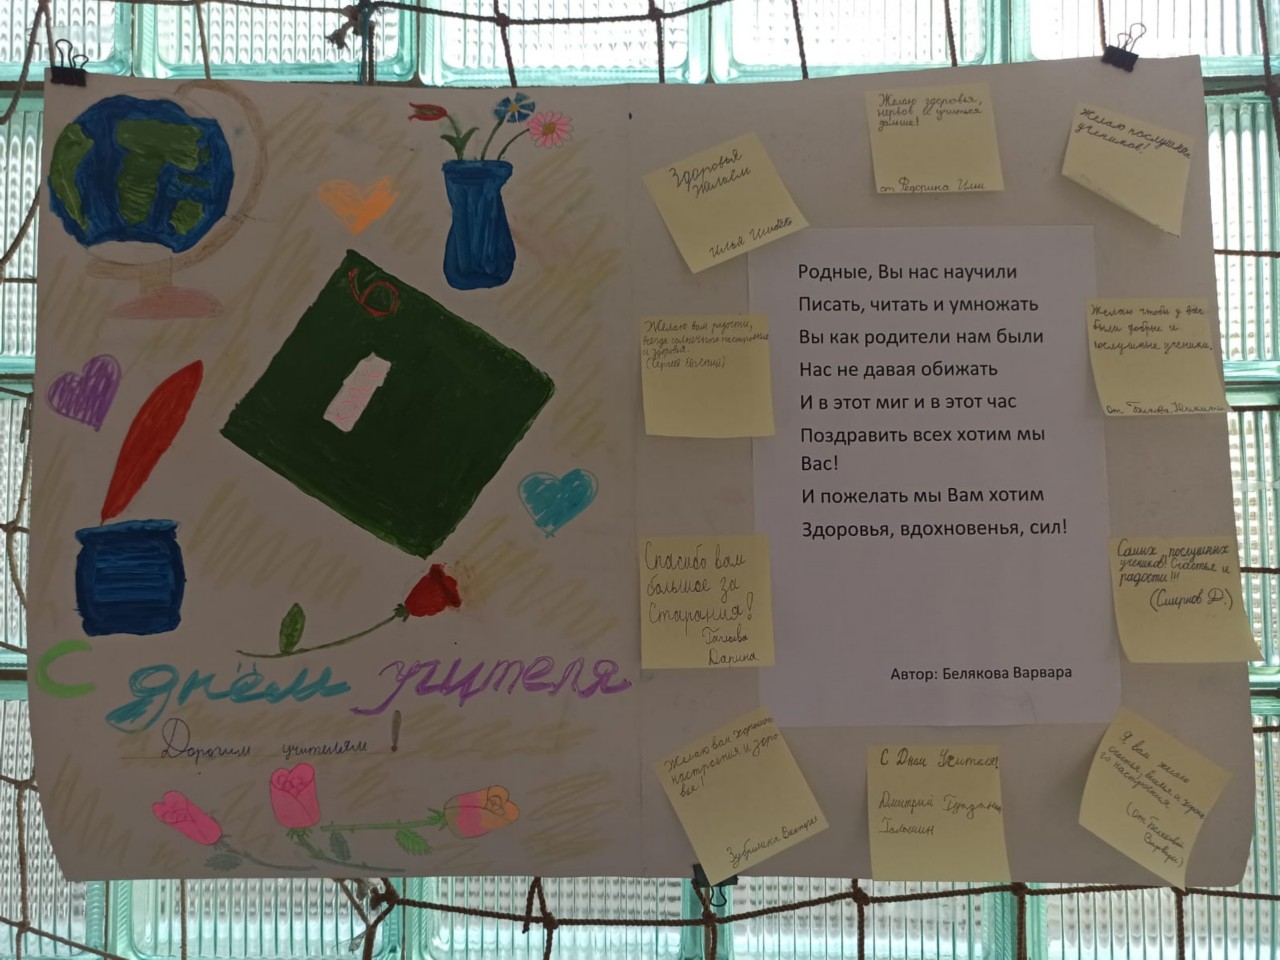 6
С днём учителя
Дорогим учителям !
Здоровья
Желаем
Илья
Желаю здоровья,
нервов и учиться
дальше!
от Федорина Ильи
Желаю послушных
учеников!
Желаю вам радости,
всегда солнечного настроения
и здоровья.
(Сергей Евгений)
Родные, Вы нас научили
Писать, читать и умножать
Вы как родители нам были
Нас не давая обижать
И в этот миг и в этот час
Поздравить всех хотим мы
Вас!
И пожелать мы Вам хотим
Здоровья, вдохновенья, сил!
Автор: Белякова Варвара
Желаю чтоб у вас
были добрые и
послушные ученики.
от
Спасибо вам
большое за
Старания!
Дарина
Самых послушных
учеников! Счастья и
радости!!!
(Смирнов Д.)
Желаю вам хорошего
настроения и здоро
вья!
С Днём Учителя!
Дмитрий
Я вам желаю
счастья,
го настроения
(От Беляковой
Варвары)